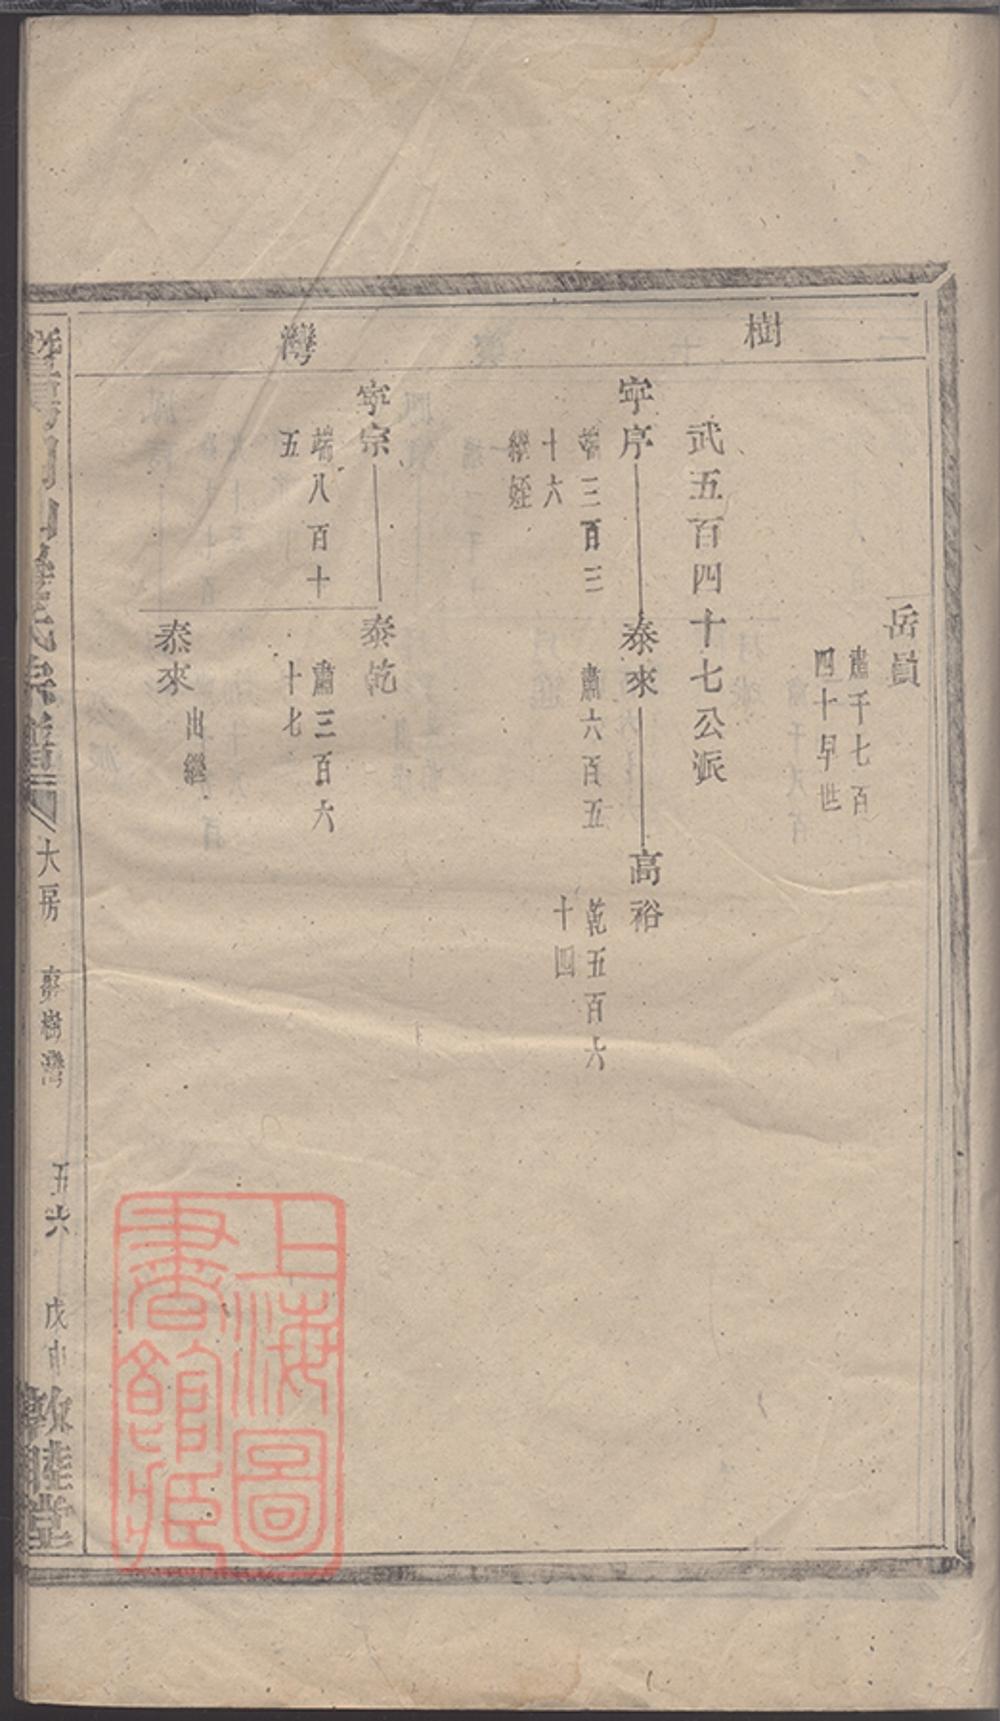 樹
灣
岳員
肅千七百
四十早世
武五百四十七公派
寜序
端三百三
十六
繼姪
泰來
肅六百五
高裕
乾五百六
十四
寜宗
端八百十
五
泰乾
肅三百六
十七
泰來
出繼
宗譜
大房
樹灣
五六
戊申
敦睦堂
上海圖
書館藏